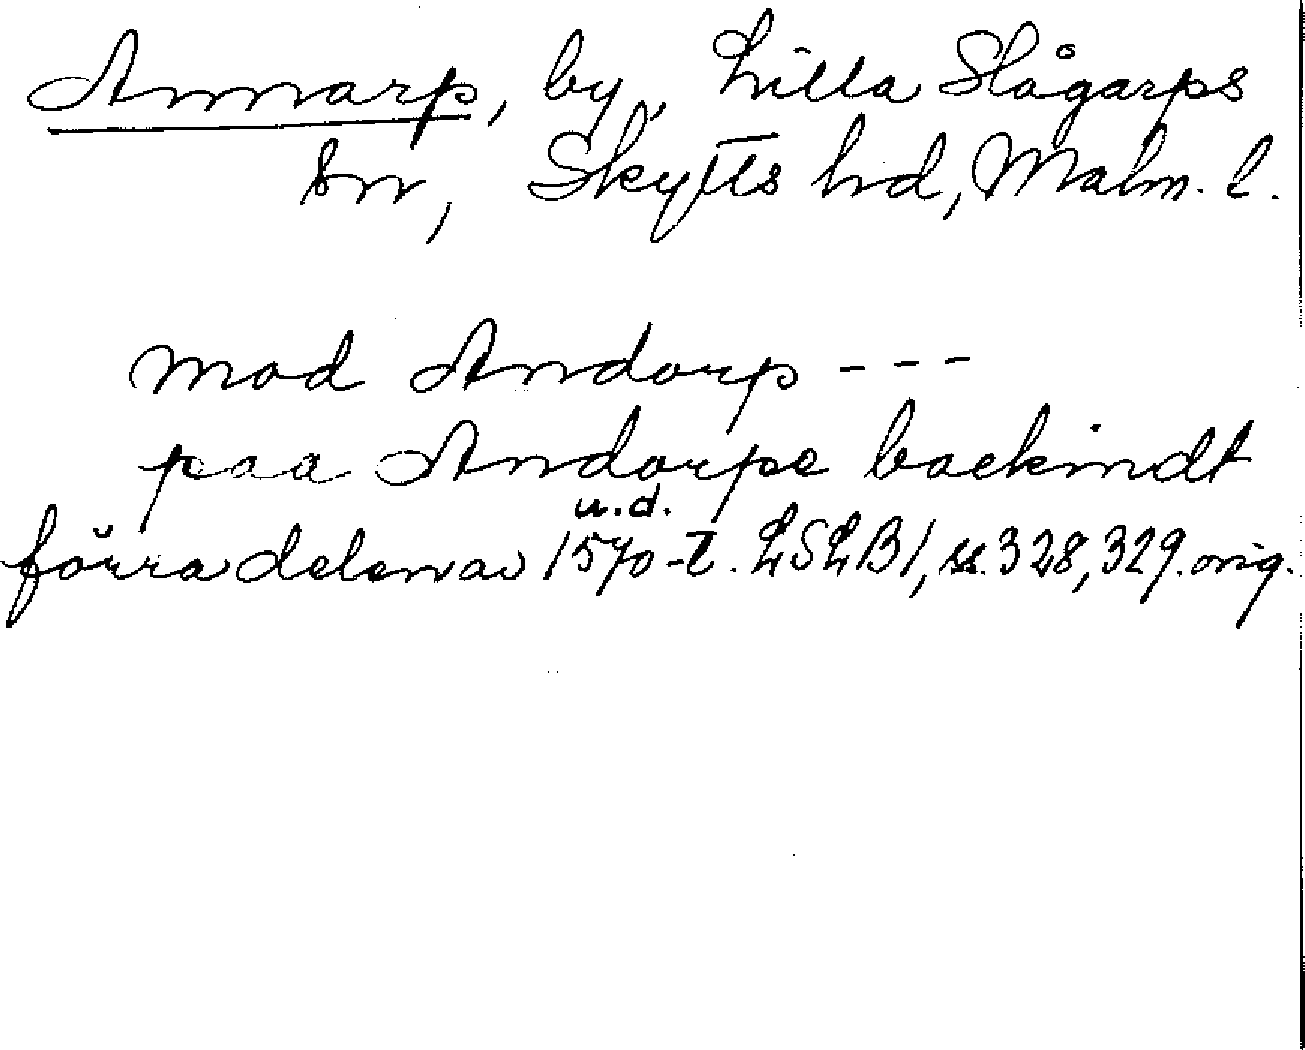 Annarp, by, Lilla Slågarps
sn, Skytts hd, Malm. l.
mod Andorp ---
paa Andorpe backindt
u.d.
förra delen av 1570-t. LSLB1, ss. 328, 329. orig.